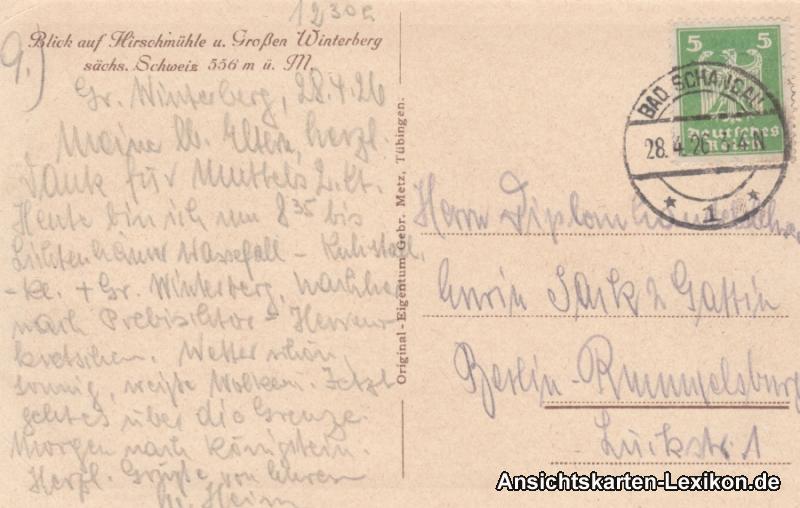 1230 a
Blick auf Hirschmühle u. Großen Winterberg
sächs. Schweiz 556 m ü. M.
9.)
Gr. Winterberg, 28.4.26
Meine lb. Eltern, herzl.
Dank für Muttels 2. Kt.
Heute bin ich um 8 35 bis
Lichtenhainer Wasserfall - Kuhstall
- Kl. + Gr. Winterberg, nachher
nach Prebischtor - Herrns-
kretschen. Wetter schön,
sonnig, weiße Wolken. Jetzt
geht es über die Grenze.
Morgen nach Königstein.
Herzl. Grüße von
Heinz
Original-Eigentum Gebr. Metz, Tübingen.
5 5
Deutsches
Reich
BAD SCHANDAU
28.4.26. 3-4N
* 1 *
Herrn
Erwin Sack & Gattin
Berlin-Rummelsburg
Lückstr. 1
Ansichtskarten-Lexikon.de